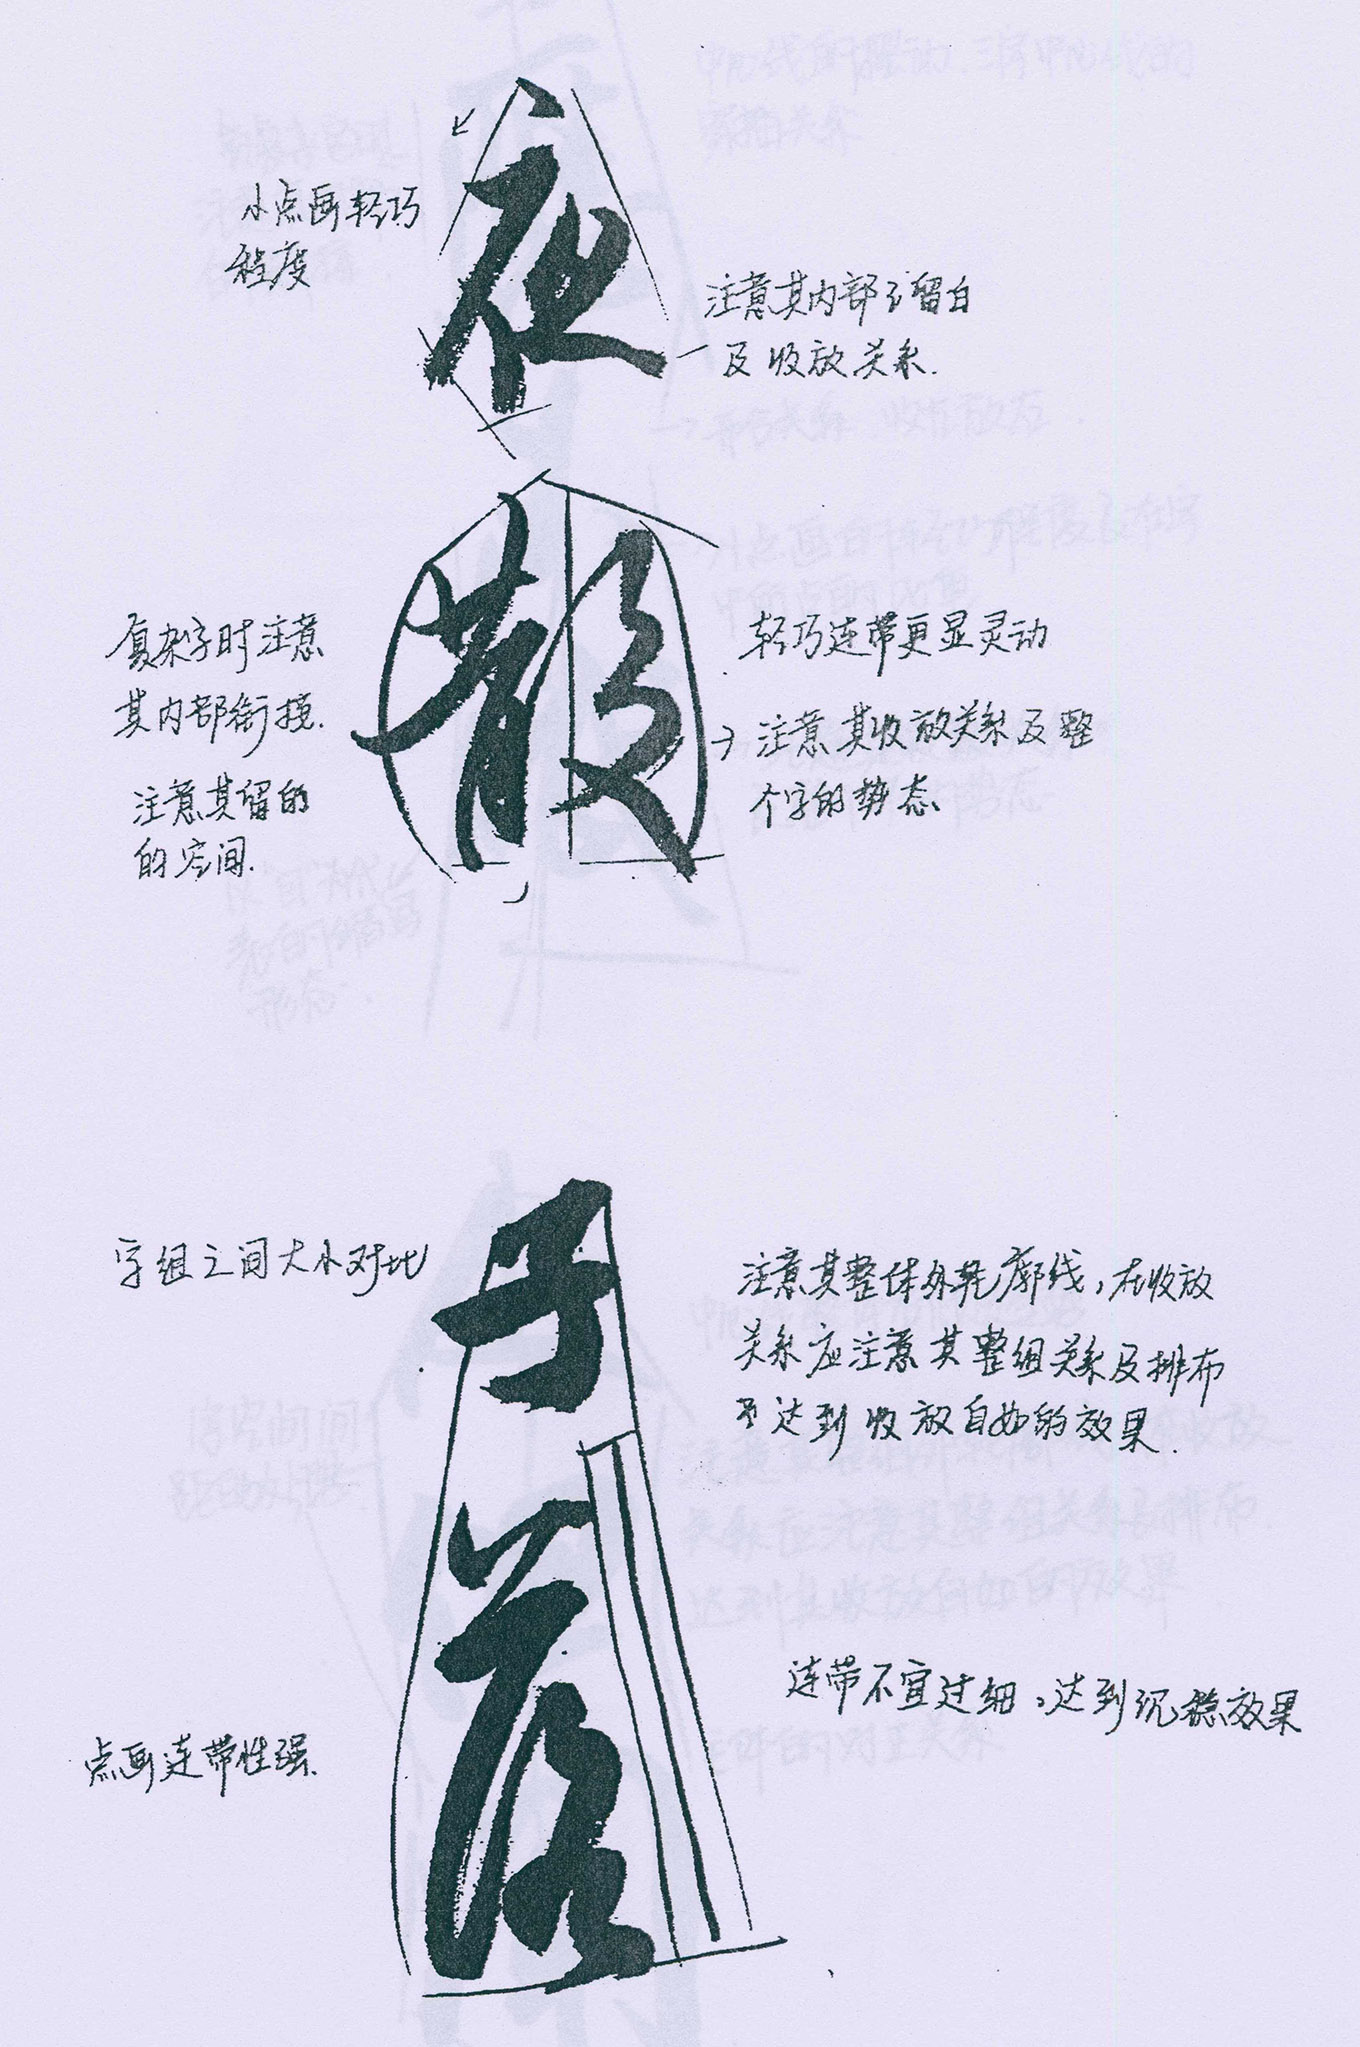 夜
小点画轻巧
程度
注意其内部之留白
及收放关系.
散
复杂字时注意
其内部衔接.
注意其留的
的空间.
轻巧连带更显灵动
注意其收放关系及整
个字的势态
于
字组之间大小对比
注意其整体外轮廓线,在收放
关系应注意其整组关系及排布
达到收放自如的效果.
落
连带不宜过细,达到沉稳效果
点画连带性强.